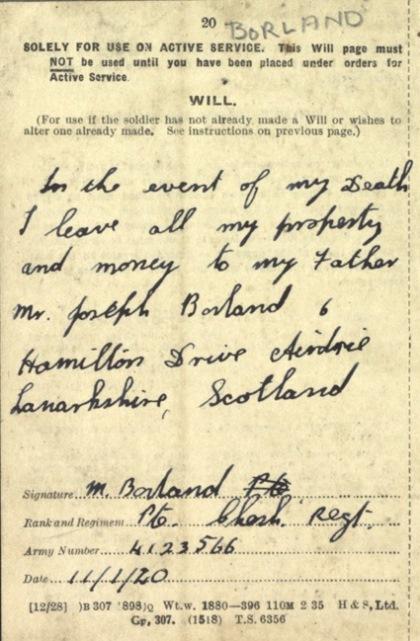 20 BORLAND
SOLELY FOR USE ON ACTIVE SERVICE. This Will page must
NOT be used until you have been placed under orders for
Active Service.
WILL.
(For use if the soldier has not already made a Will or wishes to
alter one already made. See instructions on previous page.)
In the event of my Death
I leave all my property
and money to my Father
Mr. Joseph Borland 6
Hamilton Drive Airdrie
Lanarkshire, Scotland
Signature M. Borland Pte
Rank and Regiment Pte. Chesh. Regt.
Army Number 4123566
Date 11/1/20
[12/28] )B 307 898)Q Wt.w. 1880—396 110M 2 35 H & S, Ltd.
Gp. 307. (1518) T.S. 6356